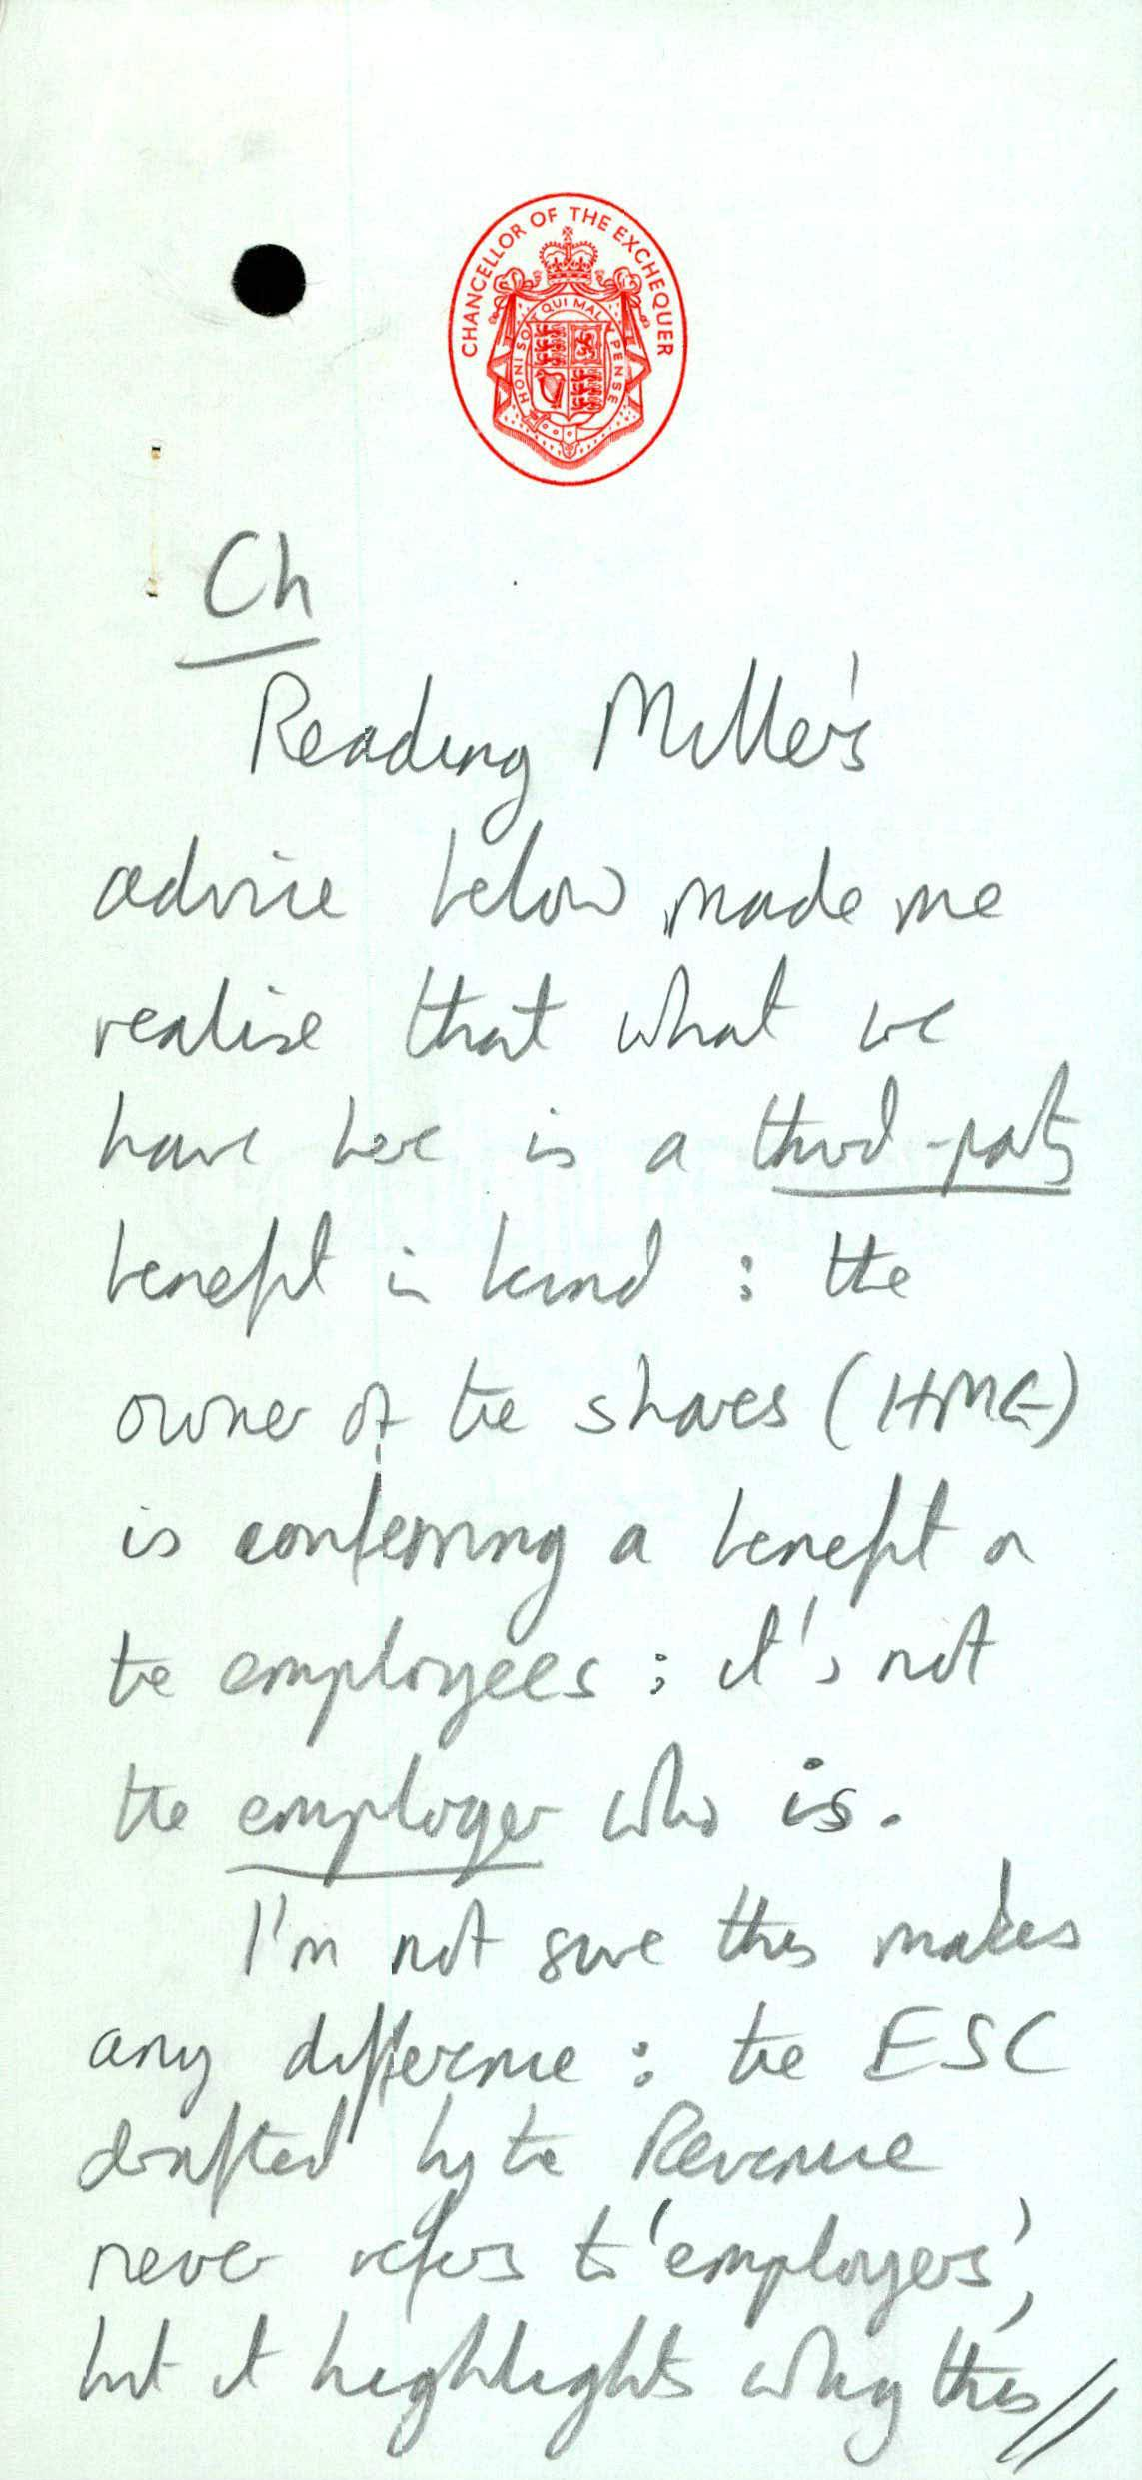 CHANCELLOR OF THE EXCHEQUER
HONI SOIT QUI MAL Y PENSE
Ch
Reading Miller's
advice below made me
realise that what we
have here is a third-party
benefit in kind : the
owner of the shares (HMG)
is conferring a benefit on
the employees : it's not
the employer who is.
I'm not sure this makes
any difference : the ESC
drafted by the Revenue
never refers to 'employers',
but it highlights why this //